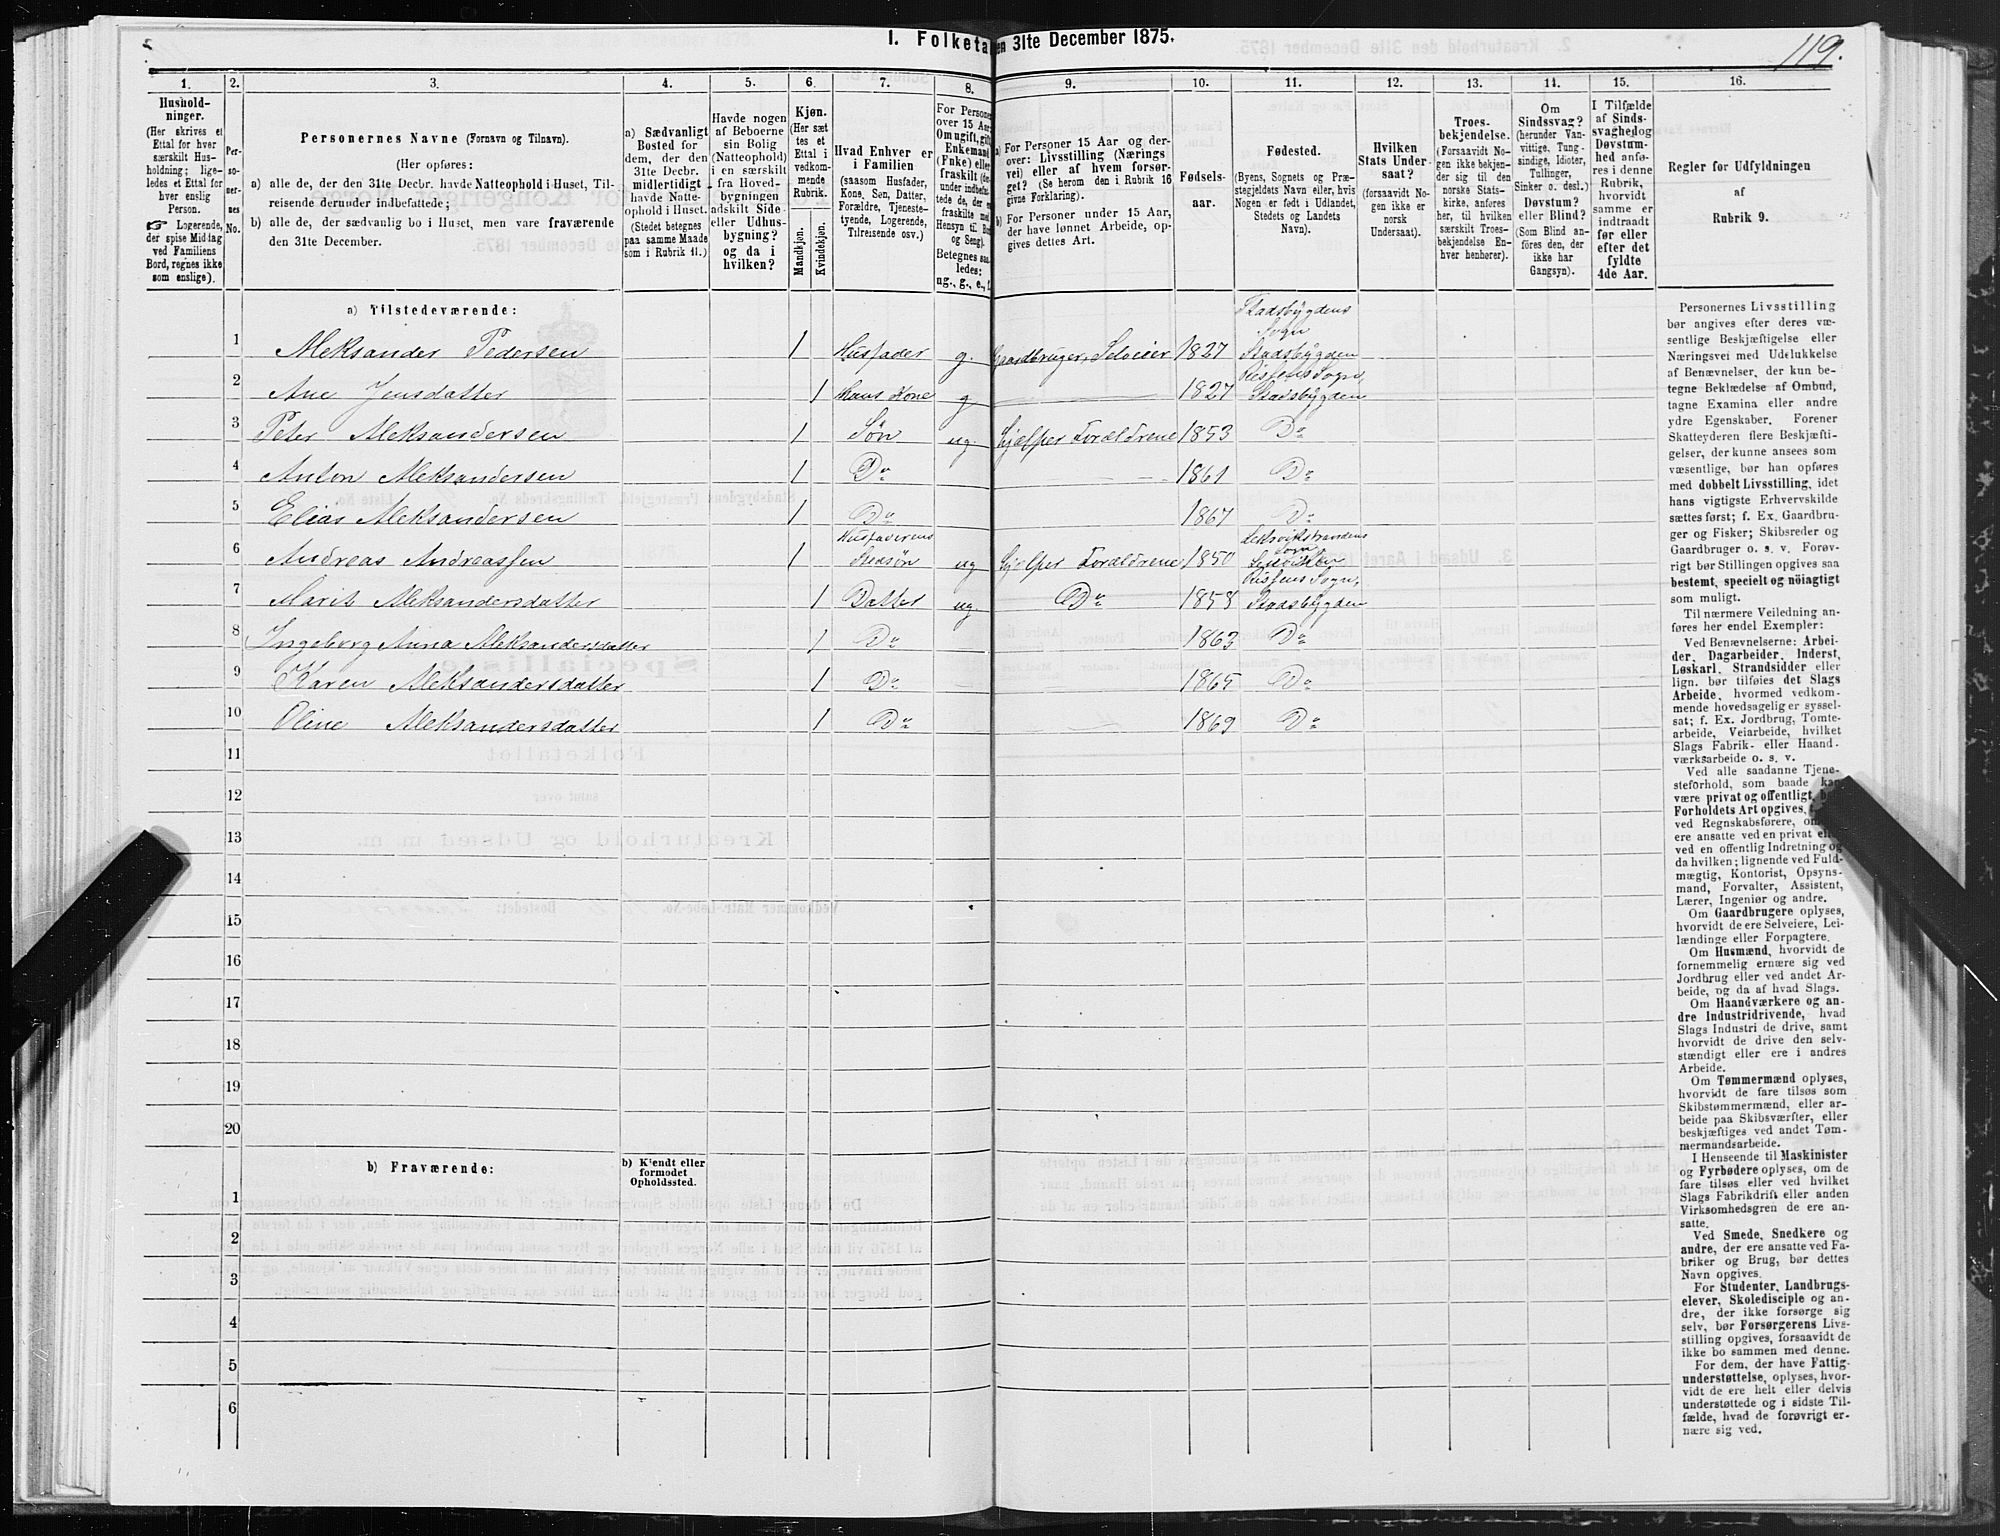 I. Folketa
en 31te December 1875.
119.
1. 2. 3. 4. 5. 6. 7. 8. 9. 10. 11. 12. 13. 14. 15. 16.
Hushold-
ninger.
(Her skrives et
Ettal for hver
særskilt Hus-
holdning; lige-
ledes et Ettal for
hver enslig
Person.
☞ Logerende,
der spise Middag
ved Familiens
Bord, regnes ikke
som enslige).
Per-
so-
ner-
nes
No.
Personernes Navne (Fornavn og Tilnavn).
(Her opføres:
a) alle de, der den 31te Decbr. havde Natteophold i Huset, Til-
reisende derunder indbefattede;
b) alle de, der sædvanlig bo i Huset, men vare fraværende
den 31te December.
a) Sædvanligt
Bosted for
dem, der den
31te Decbr.
midlertidigt
havde Natte-
ophold i Huset.
(Stedet betegnes
paa samme Maade
som i Rubrik 11.)
Havde nogen
af Beboerne
sin Bolig
(Natteophold)
i en særskilt
fra Hoved-
bygningen
adskilt Side-
eller Udhus-
bygning?
og da i
hvilken?
Kjøn.
(Her sæt-
tes et
Ettal i
vedkom-
mende
Rubrik.
Mandkjøn.
Kvindekjøn.
Hvad Enhver er
i Familien
(saasom Husfader,
Kone, Søn, Datter,
Forældre, Tjeneste-
tyende, Logerende,
Tilreisende osv.)
For Personer
over 15 Aar:
Om ugift, gift,
Enkemand
(Fnke) eller
fraskilt
Betegnes saa-
ledes:
ug., g., e.,
a) For Personer 15 Aar og der-
over: Livsstilling (Nærings
vei) eller af hvem forsør-
get? (Se herom den i Rubrik 16
givne Forklaring).
b) For Personer under 15 Aar,
der have lønnet Arbeide, op-
gives dettes Art.
Fødsels-
aar.
Fødested.
(Byens, Sognets og Præ-
stegjeldets Navn eller, hvis
Nogen er født i Udlandet,
Stedets og Landets
Navn).
Hvilken
Stats Under-
saat?
(forsaavidt No-
gen ikke er
norsk
Undersaat).
Troes-
bekjendelse.
(Forsaavidt No-
gen ikke bekjen-
der sig til den
norske Stats-
kirke, anføres
her, til hvilken
særskilt Troes-
bekjendelse En-
hver henhører).
Om
Sindssvag?
(herunder Van-
vittige, Tung-
sindige, Idioter,
Tullinger,
Sinker o. desl.)
Døvstum?
eller Blind?
(Som Blind an-
føres den, der
ikke har
Gangsyn).
I Tilfælde
af Sinds-
svaghed og
Døvstum-
hed anfø-
res i denne
Rubrik,
hvorvidt
samme er
indtraadt
før eller
efter det
fyldte
4de Aar.
Regler for Udfyldningen
af
Rubrik 9.
a) Tilstedeværende:
1 Aleksander Pedersen 1 Husfader g. Gaardbruger, Selveier 1827 Stadsbygdens Sogn Stadsbygden
2 Ane Jensdatter 1 Hans Kone g 1827 Rissens Sogn, Stadsbygden
3 Peter Aleksandersen 1 Søn ug. Hjælper Forældrene 1853 Do
4 Anton Aleksandersen 1 Do 1861 Do
5 Elias Aleksandersen 1 Do 1867 Do
6 Andreas Andreassen 1 Husfaderens Stedsøn ug Hjælper Forældrene 1850 Leksvikstrandens Sogn
7 Marit Aleksandersdatter 1 Datter ug. Do 1858 Rissens Sogn, Stadsbygden
8 Ingeborg Anna Aleksandersdatter 1 Do 1863 Do
9 Karen Aleksandersdatter 1 Do 1865 Do
10 Oline Aleksandersdatter 1 Do 1869 Do
11
12
13
14
15
16
17
18
19
20
b) Fraværende:
b) Kjendt eller
formodet
Opholdssted.
1
2
3
4
5
6
Personernes Livsstilling
bør angives efter deres væ-
sentlige Beskjæftigelse eller
Næringsvei med Udelukkelse
af Benævnelser, der kun be-
tegne Beklædelse af Ombud,
tagne Examina eller andre
ydre Egenskaber. Forener
Skatteyderen flere Beskjæfti-
gelser, der kunne ansees som
væsentlige, bør han opføres
med dobbelt Livsstilling, idet
hans vigtigste Erhvervskilde
sættes først; f. Ex. Gaardbru-
ger og Fisker; Skibsreder og
Gaardbruger o. s. v. Forøv-
rigt bør Stillingen opgives saa
bestemt, specielt og nöiagtigt
som muligt.
Til nærmere Veiledning an-
føres her endel Exempler:
Ved Benævnelserne: Arbei-
der, Dagarbeider, Inderst,
Løskarl, Strandsidder eller
lign. bør tilføies det Slags
Arbeide, hvormed vedkom-
mende hovedsagelig er syssel-
sat; f. Ex. Jordbrug, Tomte-
arbeide, Veiarbeide, hvilket
Slags Fabrik- eller Haand-
værksarbeide o. s. v.
Ved alle saadanne Tjene-
steforhold, som baade kan
være privat og offentligt,
Forholdets Art opgives,
ved Regnskabsførere,
ere ansatte ved en privat
ved en offentlig Indretning og
da hvilken; lignende ved Fuld-
mægtig, Kontorist, Opsyns-
mand, Forvalter, Assistent,
Lærer, Ingeniør og andre.
Om Gaardbrugere oplyses,
hvorvidt de ere Selveiere, Lei-
lændinge eller Forpagtere.
Om Husmænd, hvorvidt de
fornemmelig ernære sig ved
Jordbrug eller ved andet Ar-
beide, og da af hvad Slags.
Om Haandværkere og an-
dre Industridrivende, hvad
Slags Industri de drive, samt
hvorvidt de drive den selv-
stændigt eller ere i andres
Arbeide.
Om Tømmermænd oplyses,
hvorvidt de fare tilsøs som
Skibstømmermænd, eller ar-
beide paa Skibsværfter, eller
beskjæftiges ved andet Tøm-
mermandsarbeide.
I Henseende til Maskinister
og Fyrbødere oplyses, om de
fare tilsøs eller ved hvilket
Slags Fabrikdrift eller anden
Virksomhedsgren de ere an-
satte.
Ved Smede, Snedkere og
andre, der ere ansatte ved Fa-
briker og Brug, bør dettes
Navn opgives.
For Studenter, Landbrugs-
elever, Skoledisciple og an-
dre, der ikke forsørge sig
selv, bør Forsørgerens Livs-
stilling opgives, forsaavidt de
ikke bo sammen med denne.
For dem, der have Fattig-
understøttelse, oplyses, hvor-
vidt de ere helt eller delvis
understøttede og i sidste Til-
fælde, hvad de forøvrigt er-
nære sig ved.